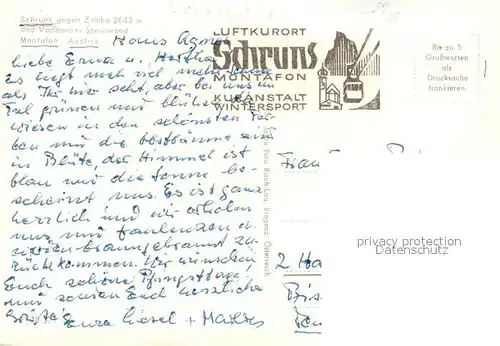 Schruns gegen Zimba 2643 m
und Vandanser Steinwand
Montafon Austria
Haus Agnes
liebe Erna u. Hertha
Es liegt noch viel mehr Schnee
als Ihr hier seht, aber bei uns im
Tal grünen und blühen die
Wiesen in den schönsten Far-
ben und die Obstbäume sind
in Blüte, der Himmel ist
blau und die Sonne be-
scheint uns. Es ist ganz
herrlich und wir erholen
uns und faulenzen u.
werden braungebrannt zu-
rückkommen. Wir wünschen
Euch schöne Pfingsttage!
und senden Euch herzliche
Grüße
Eure Liesel + Mathes
LUFTKURORT
Schruns
MONTAFON
KURANSTALT
WINTERSPORT
Bis zu 5
Grußworten
als
Drucksache
frankieren
Bregenz, Österreich
Frau
2 Ha
Bis
privacy protection
DARABANTH